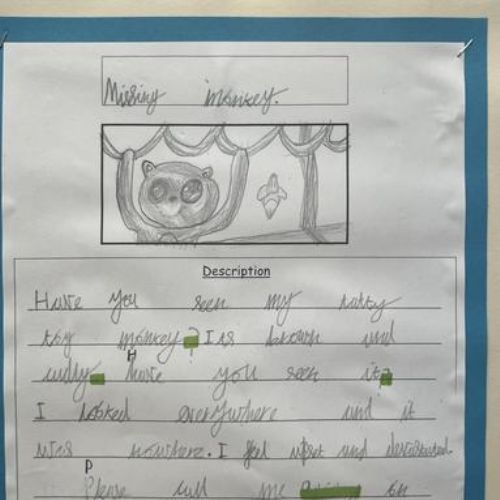 Missing monkey.
Description
Have you seen my
toy monkey? I is brown and
cudly. Have you seen it?
I looked everywhere and it
was nowhere. I feel upset and devastated.
Please call me on